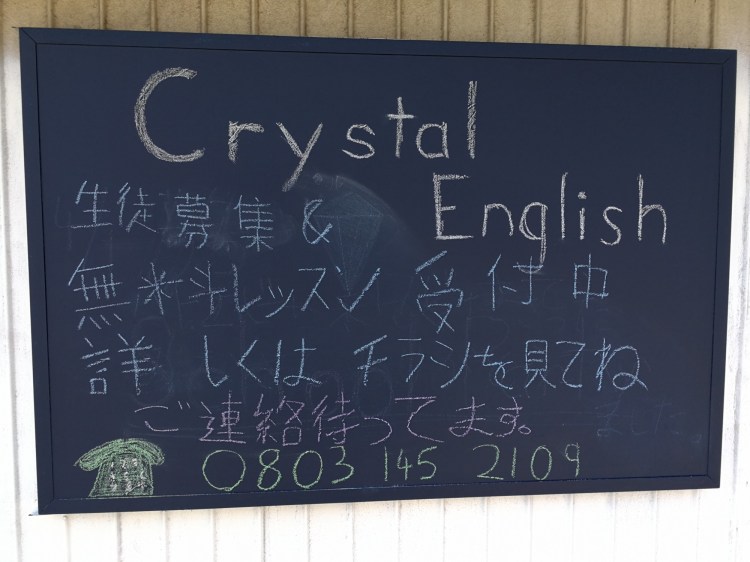 Crystal
English
生徒募集&
無料レッスン 受付中
詳しくは チラシを見てね
ご連絡待ってます。
0803 145 2109